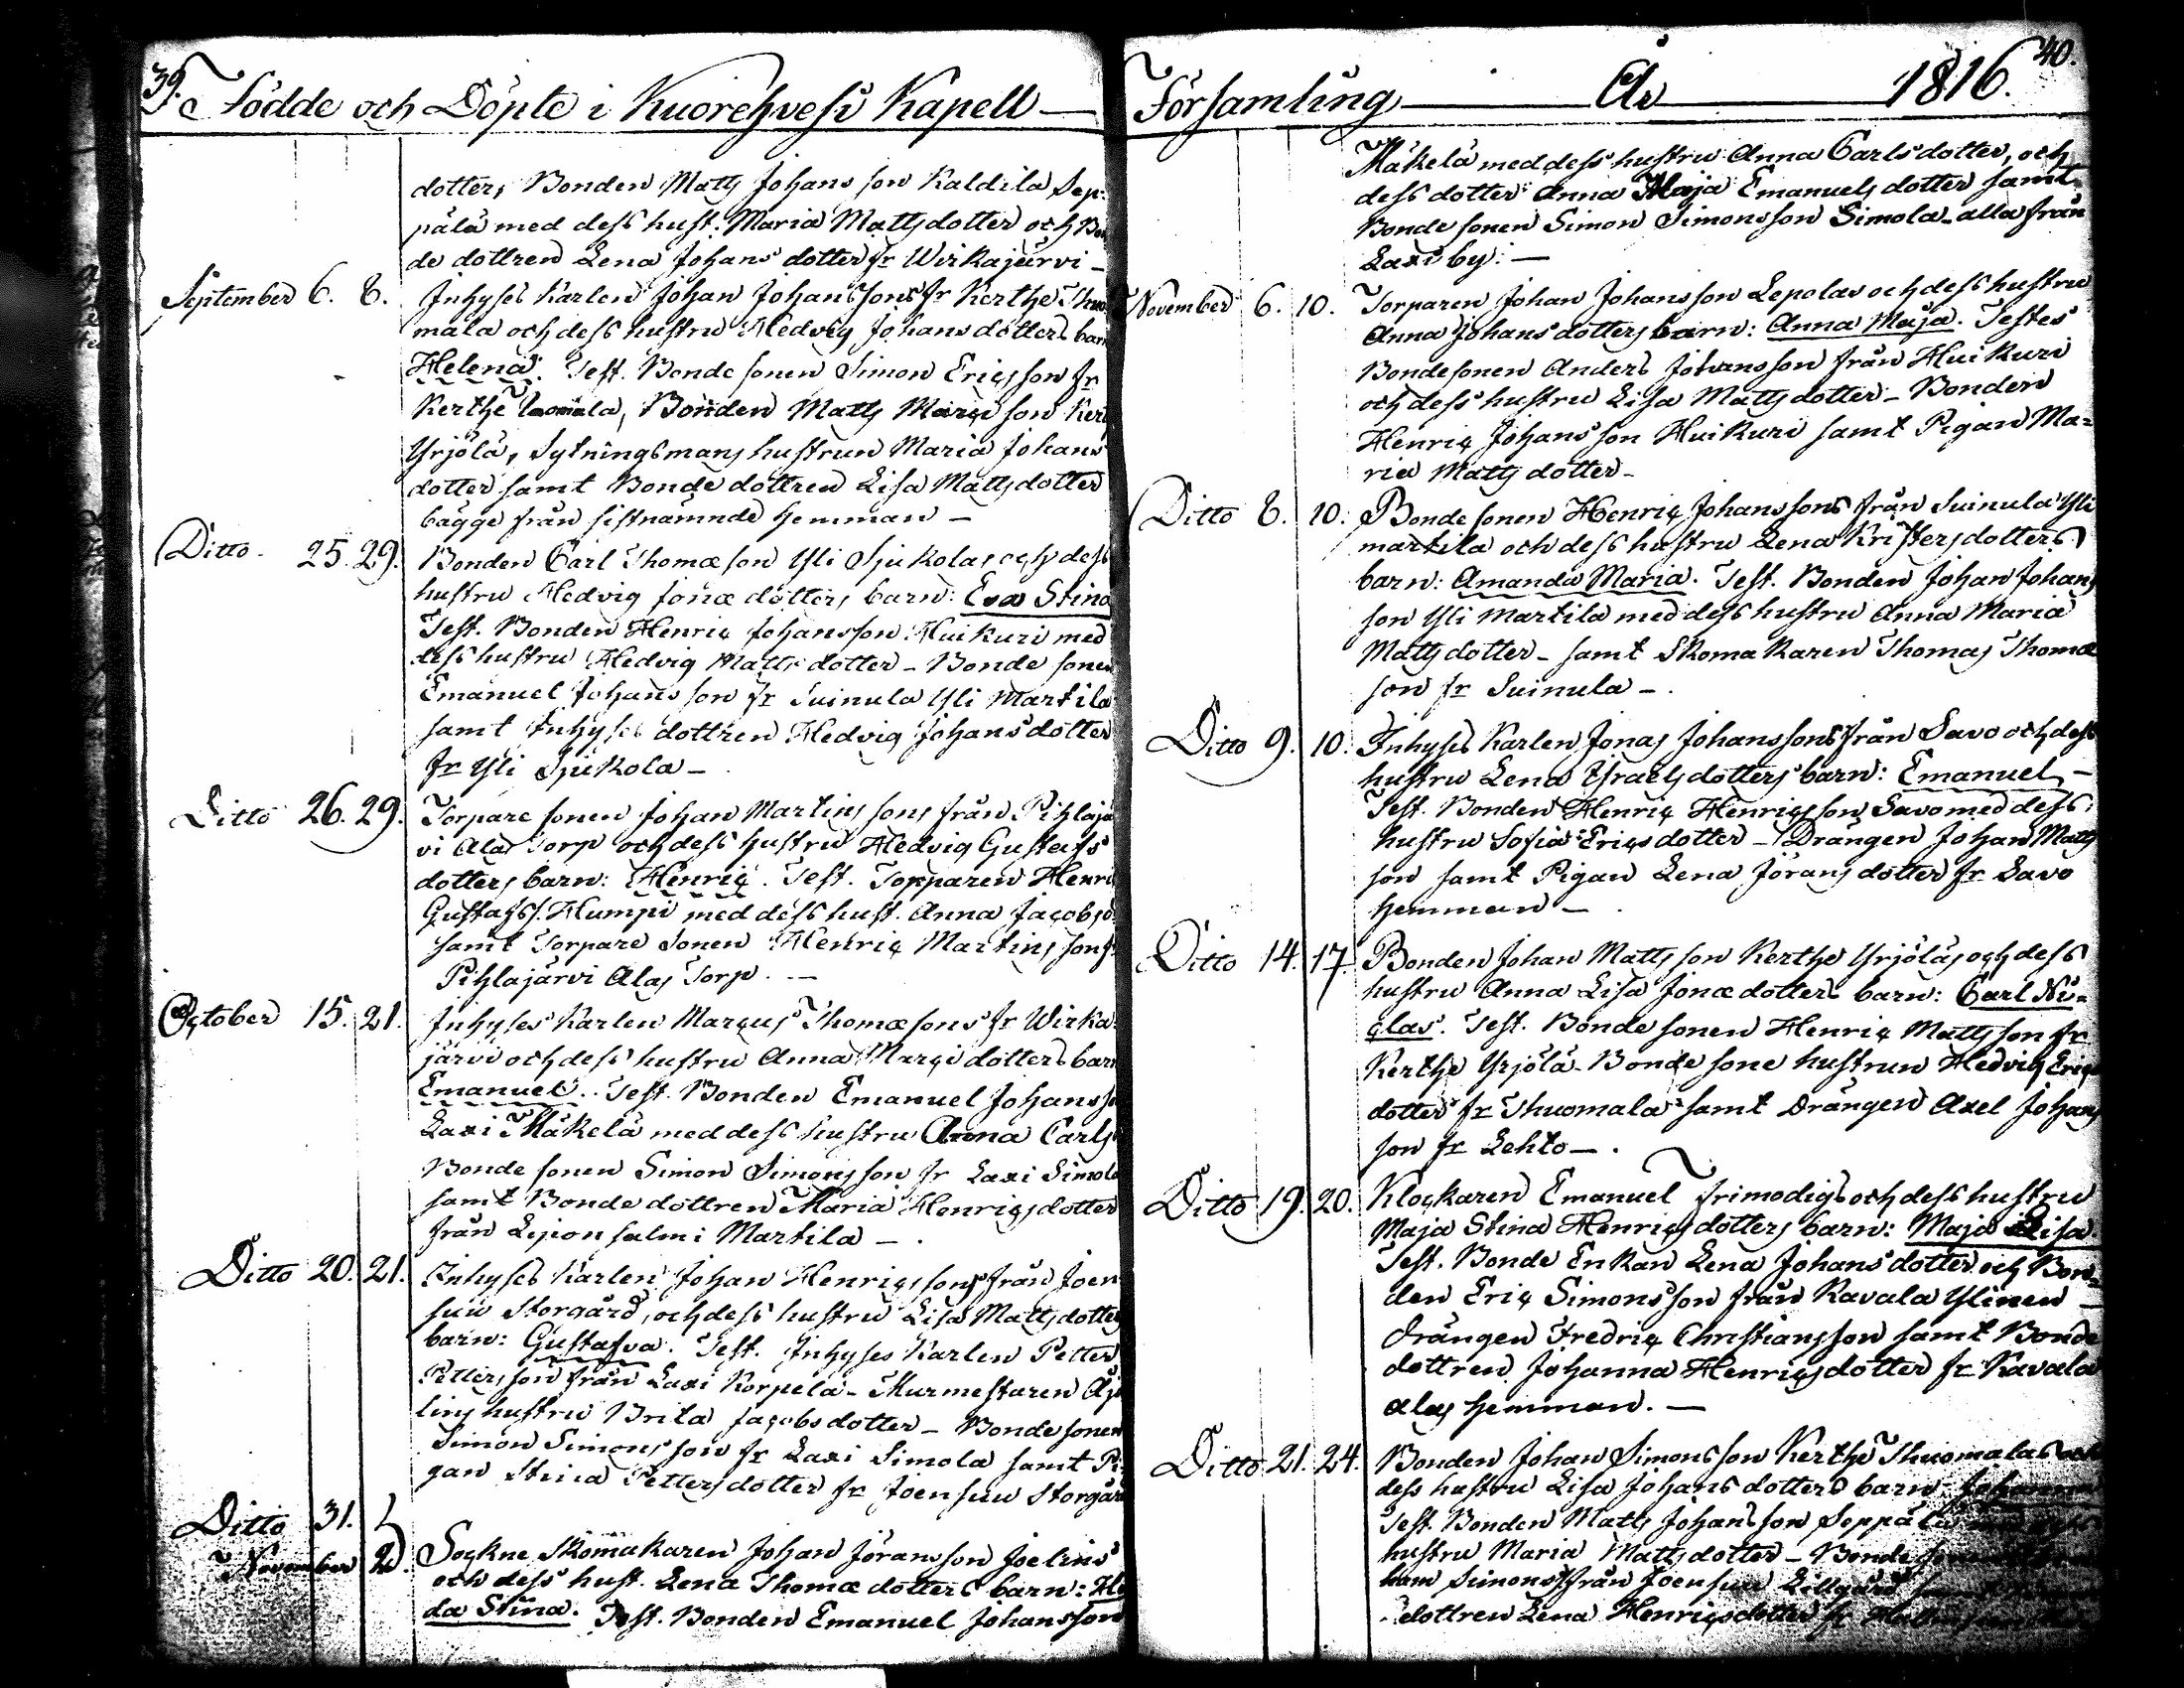 39.
Födde och Döpte i Kuorehvesi Kapell —
dotter, Bonden Matts Johansson Kaldila Sep-
pälä med dess hust. Maria Mattsdotter och Bon
de dottren Lena Johansdotter fr Wirkajärvi —
September 6. 8. Inhyses Karlen Johan Johanssons fr Kerthe Thuo
mala och dess hustru Hedvig Johansdotters barn
Helena. Test. Bondesonen Simon Ericsson fr
Kerthe Tuomala, Bonden Matts Marcisson Kert
Yrjölä, Sytningsmans hustrun Maria Johans
dotter samt Bondedottren Lisa Mattsdotter
bägge från sistnämnde hemman —
Ditto 25. 29. Bonden Carl Thomæson Yli Sjukolas och dess
hustru Hedvig Jonædotters barn: Eva Stina
Test. Bonden Henric Johansson Huikuri med
dess hustru Hedvig Mattsdotter — Bonde sonen
Emanuel Johansson fr Suinula Yli Martila
samt Inhyses dottren Hedvig Johansdotter
fr Yli Sjukola —
Ditto 26. 29. Torpare sonen Johan Martinssons från Pihlajä
vi Alas Torp och dess hustru Hedvig Gustafs
dotters barn: Henric. Test. Torparen Henric
Gustafss. Humpi med dess hust. Anna Jacobsd
samt Torpare sonen Henric Martinsson f
Pihlajärvi Alas Torp. —
October 15. 21. Inhyses Karlen Marcus Thomæsons fr Wirka
järvi och dess hustru Anna Marcidotters barn
Emanuel. Test. Bonden Emanuel Johansso
Laxi Mäkelä med dess hustru Anna Carls
Bonde sonen Simon Simonsson fr Laxi Simola
samt Bonde dottren Maria Henricsdotter
från Lejonsalmi Martila —
Ditto 20. 21. Inhyses Karlen Johan Henricssons från Joen
suu Storgård, och dess hustru Lisa Mattsdotters
barn: Gustafva. Test. Inhyses Karlen Petter
Pettersson från Laxi Korpela — Murmestaren Äje
lins hustru Brita Jacobsdotter — Bondesonen
Simon Simonsson fr Laxi Simola samt Pi
gan Stina Pettersdotter fr Joensuu Storgård
Ditto 31.
November 2. Sockne Skomakaren Johan Jöransson Joelins
och dess hust. Lena Thomædotters barn: He
da Stina. Test. Bonden Emanuel Johansson
40.
Församling — År — 1816.
Mäkelä med dess hustru Anna Carlsdotter, och
dess dotter Anna Maja Emanuelsdotter samt
Bonde sonen Simon Simonsson Simola alla från
Laxi by: —
November 6. 10. Torparen Johan Johansson Lepolas och dess hustru
Anna Johansdotters barn: Anna Maja. Testes
Bondesonen Anders Johansson från Huikuri
och dess hustru Lisa Mattsdotter — Bonden
Henric Johansson Huikuri samt Pigan Ma-
ria Mattsdotter —
Ditto 8. 10. Bonde sonen Henric Johanssons från Suinula Yli
martila och dess hustru Lena Kristersdotters
barn: Amanda Maria. Test. Bonden Johan Johans
son Yli Martila med dess hustru Anna Maria
Mattsdotter — samt Skomakaren Thomas Thomæ
son fr Suinula —
Ditto 9. 10. Inhyses Karlen Jonas Johanssons från Savo och dess
hustru Lena Israelsdotters barn: Emanuel, —
Test. Bonden Henric Henricsson Savo med dess
hustru Sofia Ericsdotter — Drängen Johan Matts
son samt Pigan Lena Jöransdotter fr Savo
hemman —
Ditto 14. 17. Bonden Johan Mattsson Kerthe Yrjöläs och dess
hustru Anna Lisa Jonædotters barn: Carl Ni-
clas. Test. Bonde sonen Henric Mattsson fr
Kerthe Yrjölä — Bonde sone hustrun Hedvig Erics
dotter fr Thuomala samt Drängen Axel Johans
son fr Lehto —
Ditto 19. 20. Klockaren Emanuel Frimodigs och dess hustru
Maja Stina Henricsdotters barn: Maja Lisa
Test. Bonde Enkan Lena Johansdotter och Bon-
den Eric Simonsson från Kavala Ylinen —
drängen Fredric Christiansson samt Bonde
dottren Johanna Henricsdotter fr Kavala
alas hemman. —
Ditto 21. 24. Bonden Johan Simonsson Kerthe Thuomalas och
dess hustru Lisa Johansdotters barn: Johanna
Test. Bonden Matts Johansson Seppälä
hustru Maria Mattsdotter — Bonde
Simonss från Joensuu Lillgård
dottren Lena Henricsdotter fr